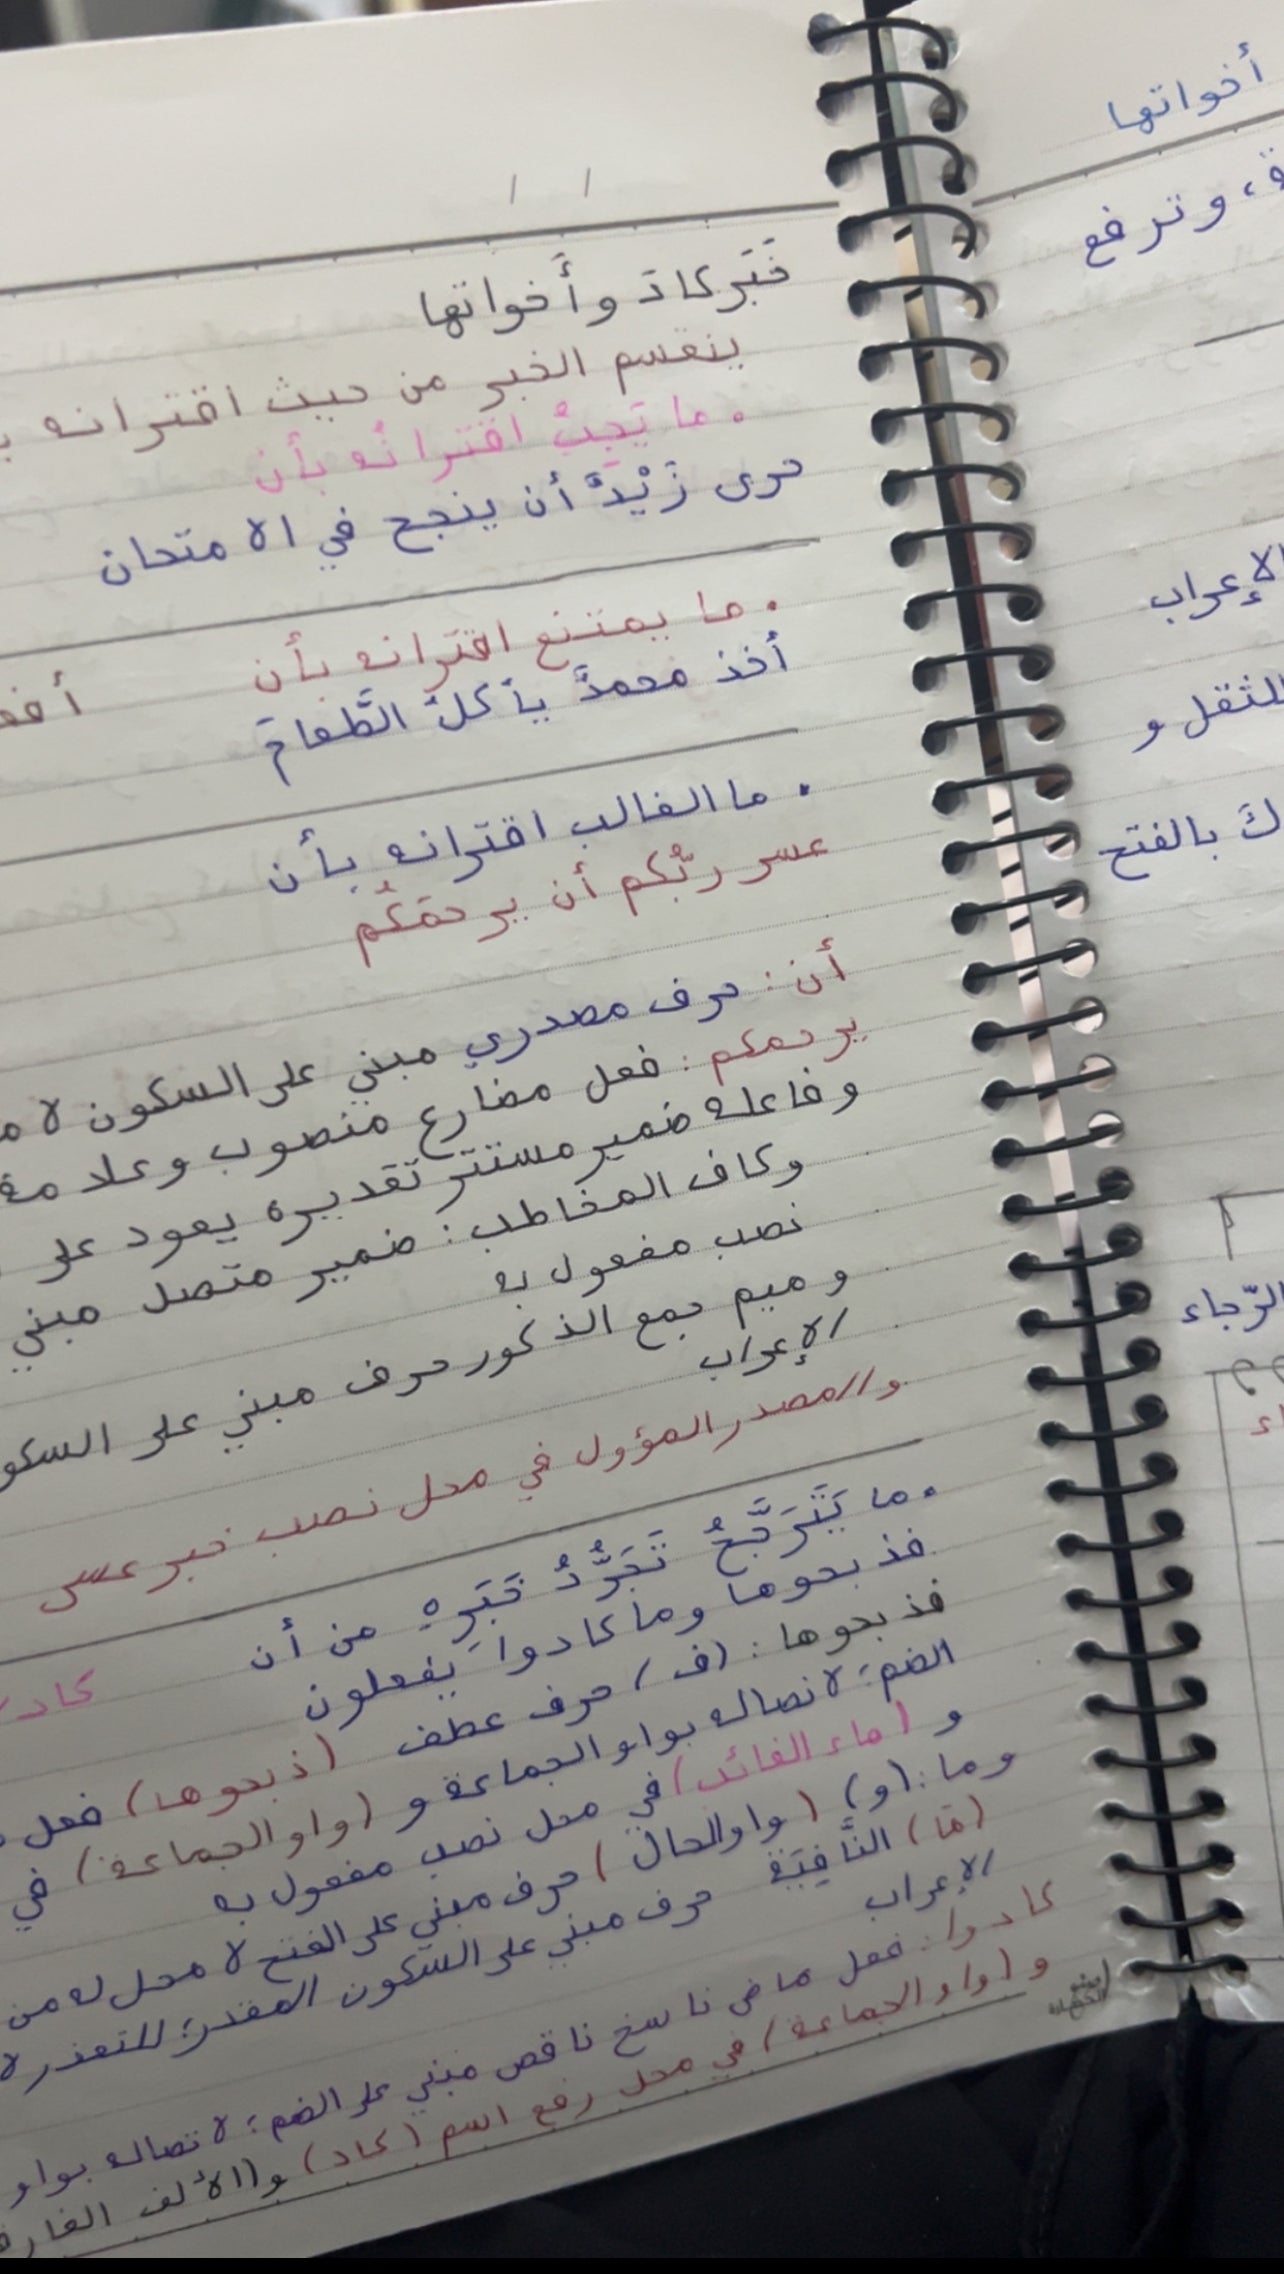 أخواتها
وترفع
الإعراب
للثقل و
بالفتح
الرّجاء
خَبَر كادَ وأَخواتها
ينقسم الخبر من حيث اقترانه
. ما يَجِبُ اقترانُه بأن
حرى زَيْدٌ أن ينجح في الامتحان
. ما يمتنع اقترانه بأن
أخذ محمدٌ يأكلُ الطَّعامَ
. ما الغالب اقترانه بأن
عسى ربُّكم أن يرحمَكُم
أن: حرف مصدري مبني على السكون لا
يرحمكم: فعل مضارع منصوب وعلامة
وفاعله ضمير مستتر تقديره يعود على
وكاف المخاطب: ضمير متصل مبني
نصب مفعول به
وميم جمع الذكور حرف مبني على
الإعراب
والمصدر المؤول في محل نصب خبر عسى
. ما يَتَرَجَّحُ تَجَرُّدُ خَبَرِهِ من أن
كاد
فذبحوها وما كادوا يفعلون
فذبحوها: (ف) حرف عطف (ذبحوها) فعل
الضم؛ لاتصاله بواو الجماعة و (واو الجماعة) في
و (هاء الغائب) في محل نصب مفعول به
وما: (و) (واو الحال) حرف مبني على الفتح لا محل له من
(ما) النَّافِيَة حرف مبني على السكون المقدر؛ للتعذر لا
الإعراب
كادوا: فعل ماض ناسخ ناقص مبني على الضم؛ لاتصاله بواو
و (واو الجماعة) في محل رفع اسم (كاد) و (الألف